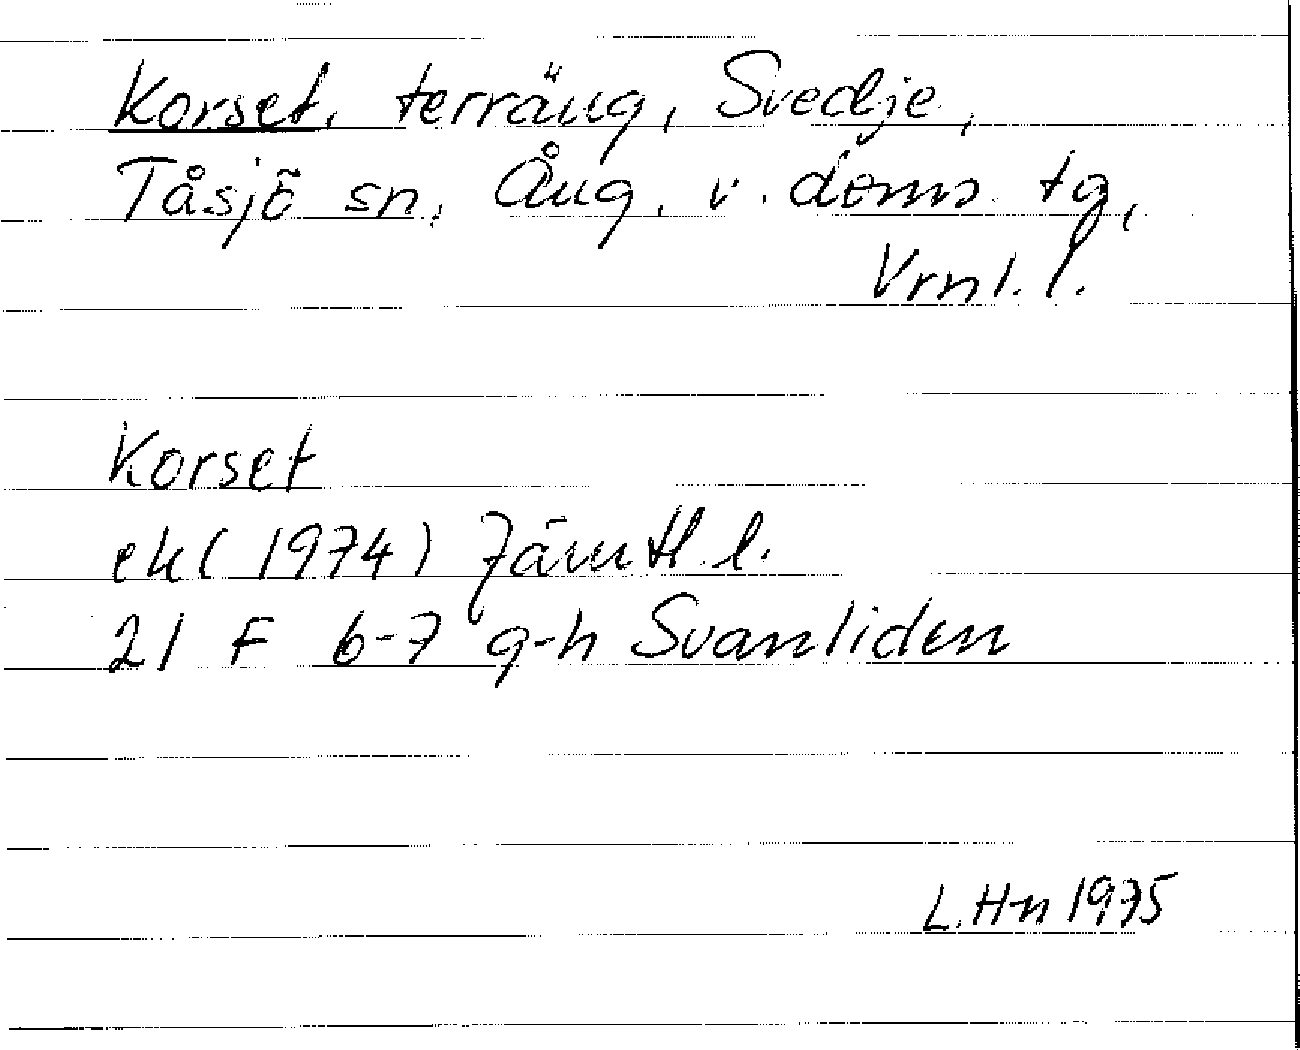 Korset, terräng, Svedje,
Tåsjö sn, Ång. v. doms. tg,
Vrnl. l.
Korset
ek (1974) Jämtl. l.
21 F 6-7 g-h Svanliden
L. H-n 1975